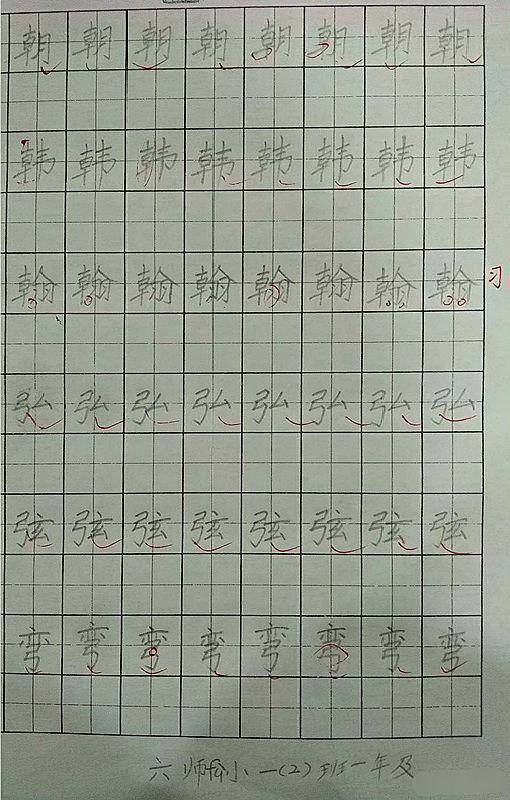 朝朝朝朝朝朝朝朝
韩韩韩韩韩韩韩韩
翰翰翰翰翰翰翰翰 习
弘弘弘弘弘弘弘弘
弦弦弦弦弦弦弦弦
弯弯弯弯弯弯弯弯
六师附小一(2)班一年及